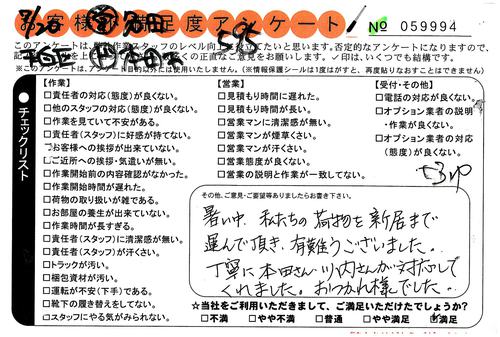 7/20
お客様満足度アンケート
№ 059994
595
このアンケートは、
作業スタッフのレベル向上
と思います。否定的なアンケートになりますので、
正直なご意見をお願いします。✓印は、いくつでも結構です。
※このアンケートは、アンケート目的以外には使用いたしません。(※情報保護シールは1度はがすと、再度貼りなおすことはできません)
チェックリスト
【作業】
□責任者の対応(態度)が良くない。
□他のスタッフの対応(態度)が良くない。
□作業を見ていて不安がある。
□責任者(スタッフ)に好感が持てない。
□お客様への挨拶が出来ていない。
□ご近所への挨拶・気遣いが無い。
□作業開始前の内容確認がなかった。
□作業開始時間が遅れた。
□荷物の取り扱いが雑である。
□お部屋の養生が出来ていない。
□作業時間が長すぎる。
□責任者(スタッフ)に清潔感が無い。
□責任者(スタッフ)が汗くさい。
□トラックが汚い。
□梱包資材が汚い。
□運転が不安(下手)である。
□靴下の履き替えをしてない。
□スタッフにやる気がみられない。
【営業】
□見積もり時間に遅れた。
□見積もり時間が長い。
□営業マンに清潔感が無い。
□営業マンが煙草くさい。
□営業マンが汗くさい。
□営業態度が良くない。
□営業の説明と作業が一致してない。
【受付・その他】
□電話の対応が良くない。
□オプション業者の説明
・作業が良くない。
□オプション業者の対応
(態度)が良くない。
その他、ご意見・ご要望等ありましたらお書き下さい。
暑い中、私たちの荷物を新居まで
運んで頂き、有難うございました。
丁寧に本田さん、川内さんが対応して
くれました。おつかれ様でした。
☆当社をご利用いただきまして、ご満足いただけたでしょうか?
□不満 □やや不満 □普通 □やや満足 ☑満足